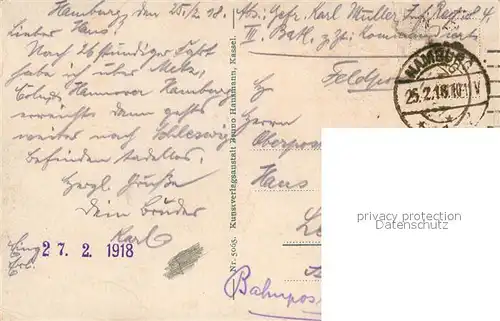 Hamburg, den 25./2. 18.
Lieber Hans!
Nach 26 stündiger Fahrt
habe ich über Metz,
Hannover Hamburg
erreicht. Von dann gehts
weiter nach Schleswig
Befinden tadellos.
Herzl. Grüße
Dein Bruder
Karl
27. 2. 1918
Nr. 5065. Kunstverlagsanstalt Bruno Hansmann, Kassel.
Abs.: Gefr. Karl Müller Inf. Reg.
III. Batl. z. Zt.
Feldpost
HAMBURG
25.2.18. 10-11 V
Herrn
Oberpost
Hans
Bahnpost
privacy protection
Datenschutz